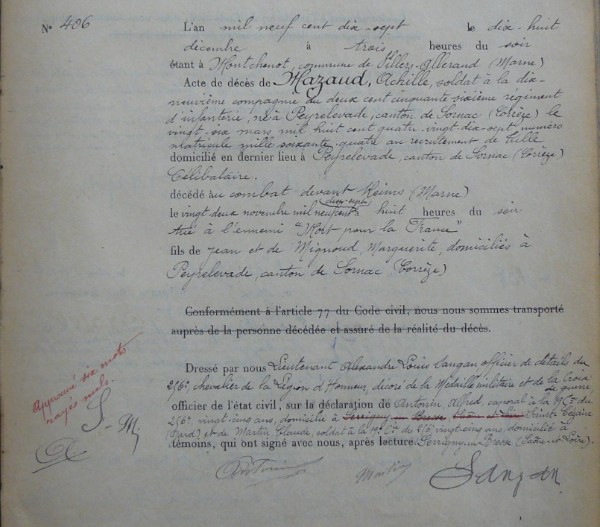 N° 406
L'an mil neuf cent dix-sept le dix-huit
décembre à trois heures du soir
étant à Montchenot, commune de Villers-Allerand (Marne)
Acte de décès de Mazaud, Achille, soldat à la dix-
neuvième compagnie du deux cent cinquante sixième régiment
d'infanterie, né à Peyrelevade, canton de Sornac (Corrèze) le
vingt-six mars mil huit cent quatre vingt-dix-sept, numéro
matricule mille soixante quatre au recrutement de
domicilié en dernier lieu à Peyrelevade, canton de Sornac (Corrèze)
Célibataire.
décédé au combat devant Reims (Marne)
(dix-sept)
le vingt deux novembre mil neuf cent à huit heures du soir
tué à l'ennemi "Mort pour la France"
fils de Jean et de Mignoud, Marguerite, domiciliés à
Peyrelevade, canton de Sornac (Corrèze)
Conformément à l'article 77 du Code civil, nous nous sommes transporté
auprès de la personne décédée et assuré de la réalité du décès.
Dressé par nous Lieutenant Alexandre Louis Sangan officier de détails du
256e, chevalier de la Légion d'Honneur, décoré de la Médaille militaire et de la Croix
de guerre
officier de l'état civil, sur la déclaration de Antonin Alfred, caporal à la 19e Cie du
256e, vingt-cinq ans, domicilié à Serrigny en Bresse Saône et Loire Saint
(Gard) et de Martin Claude, soldat à la 19e Cie du 256e vingt-cinq ans, domicilié à
témoins, qui ont signé avec nous, après lecture. Serrigny en Bresse (Saône et Loire).
Approuvé six mots
rayés nuls.
S- M
A
Antonin Martin Sangan